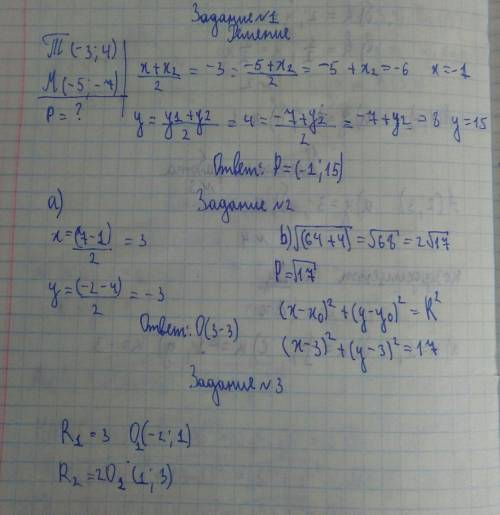 Задание №1
Решение
T(-3; 4)
M(-5; -7)
P = ?
x+x₂/2 = -3 = -5+x₂/2 = -5 + x₂ = -6 x=-1
y = y1+y2/2 = 4 = -7+y2/2 = -7+y2 = 8 y=15
Ответ: P=(-1; 15)
Задание №2
а)
x=(7-1)/2 = 3
y=(-2-4)/2 = -3
Ответ: O(3-3)
b) √(64+4) = √68 = 2√17
R=√17
(x-x₀)² + (y-y₀)² = R²
(x-3)² + (y-3)² = 17
Задание №3
R₁ = 3 O₁(-2; 1)
R₂ = 2O₂ (1; 3)